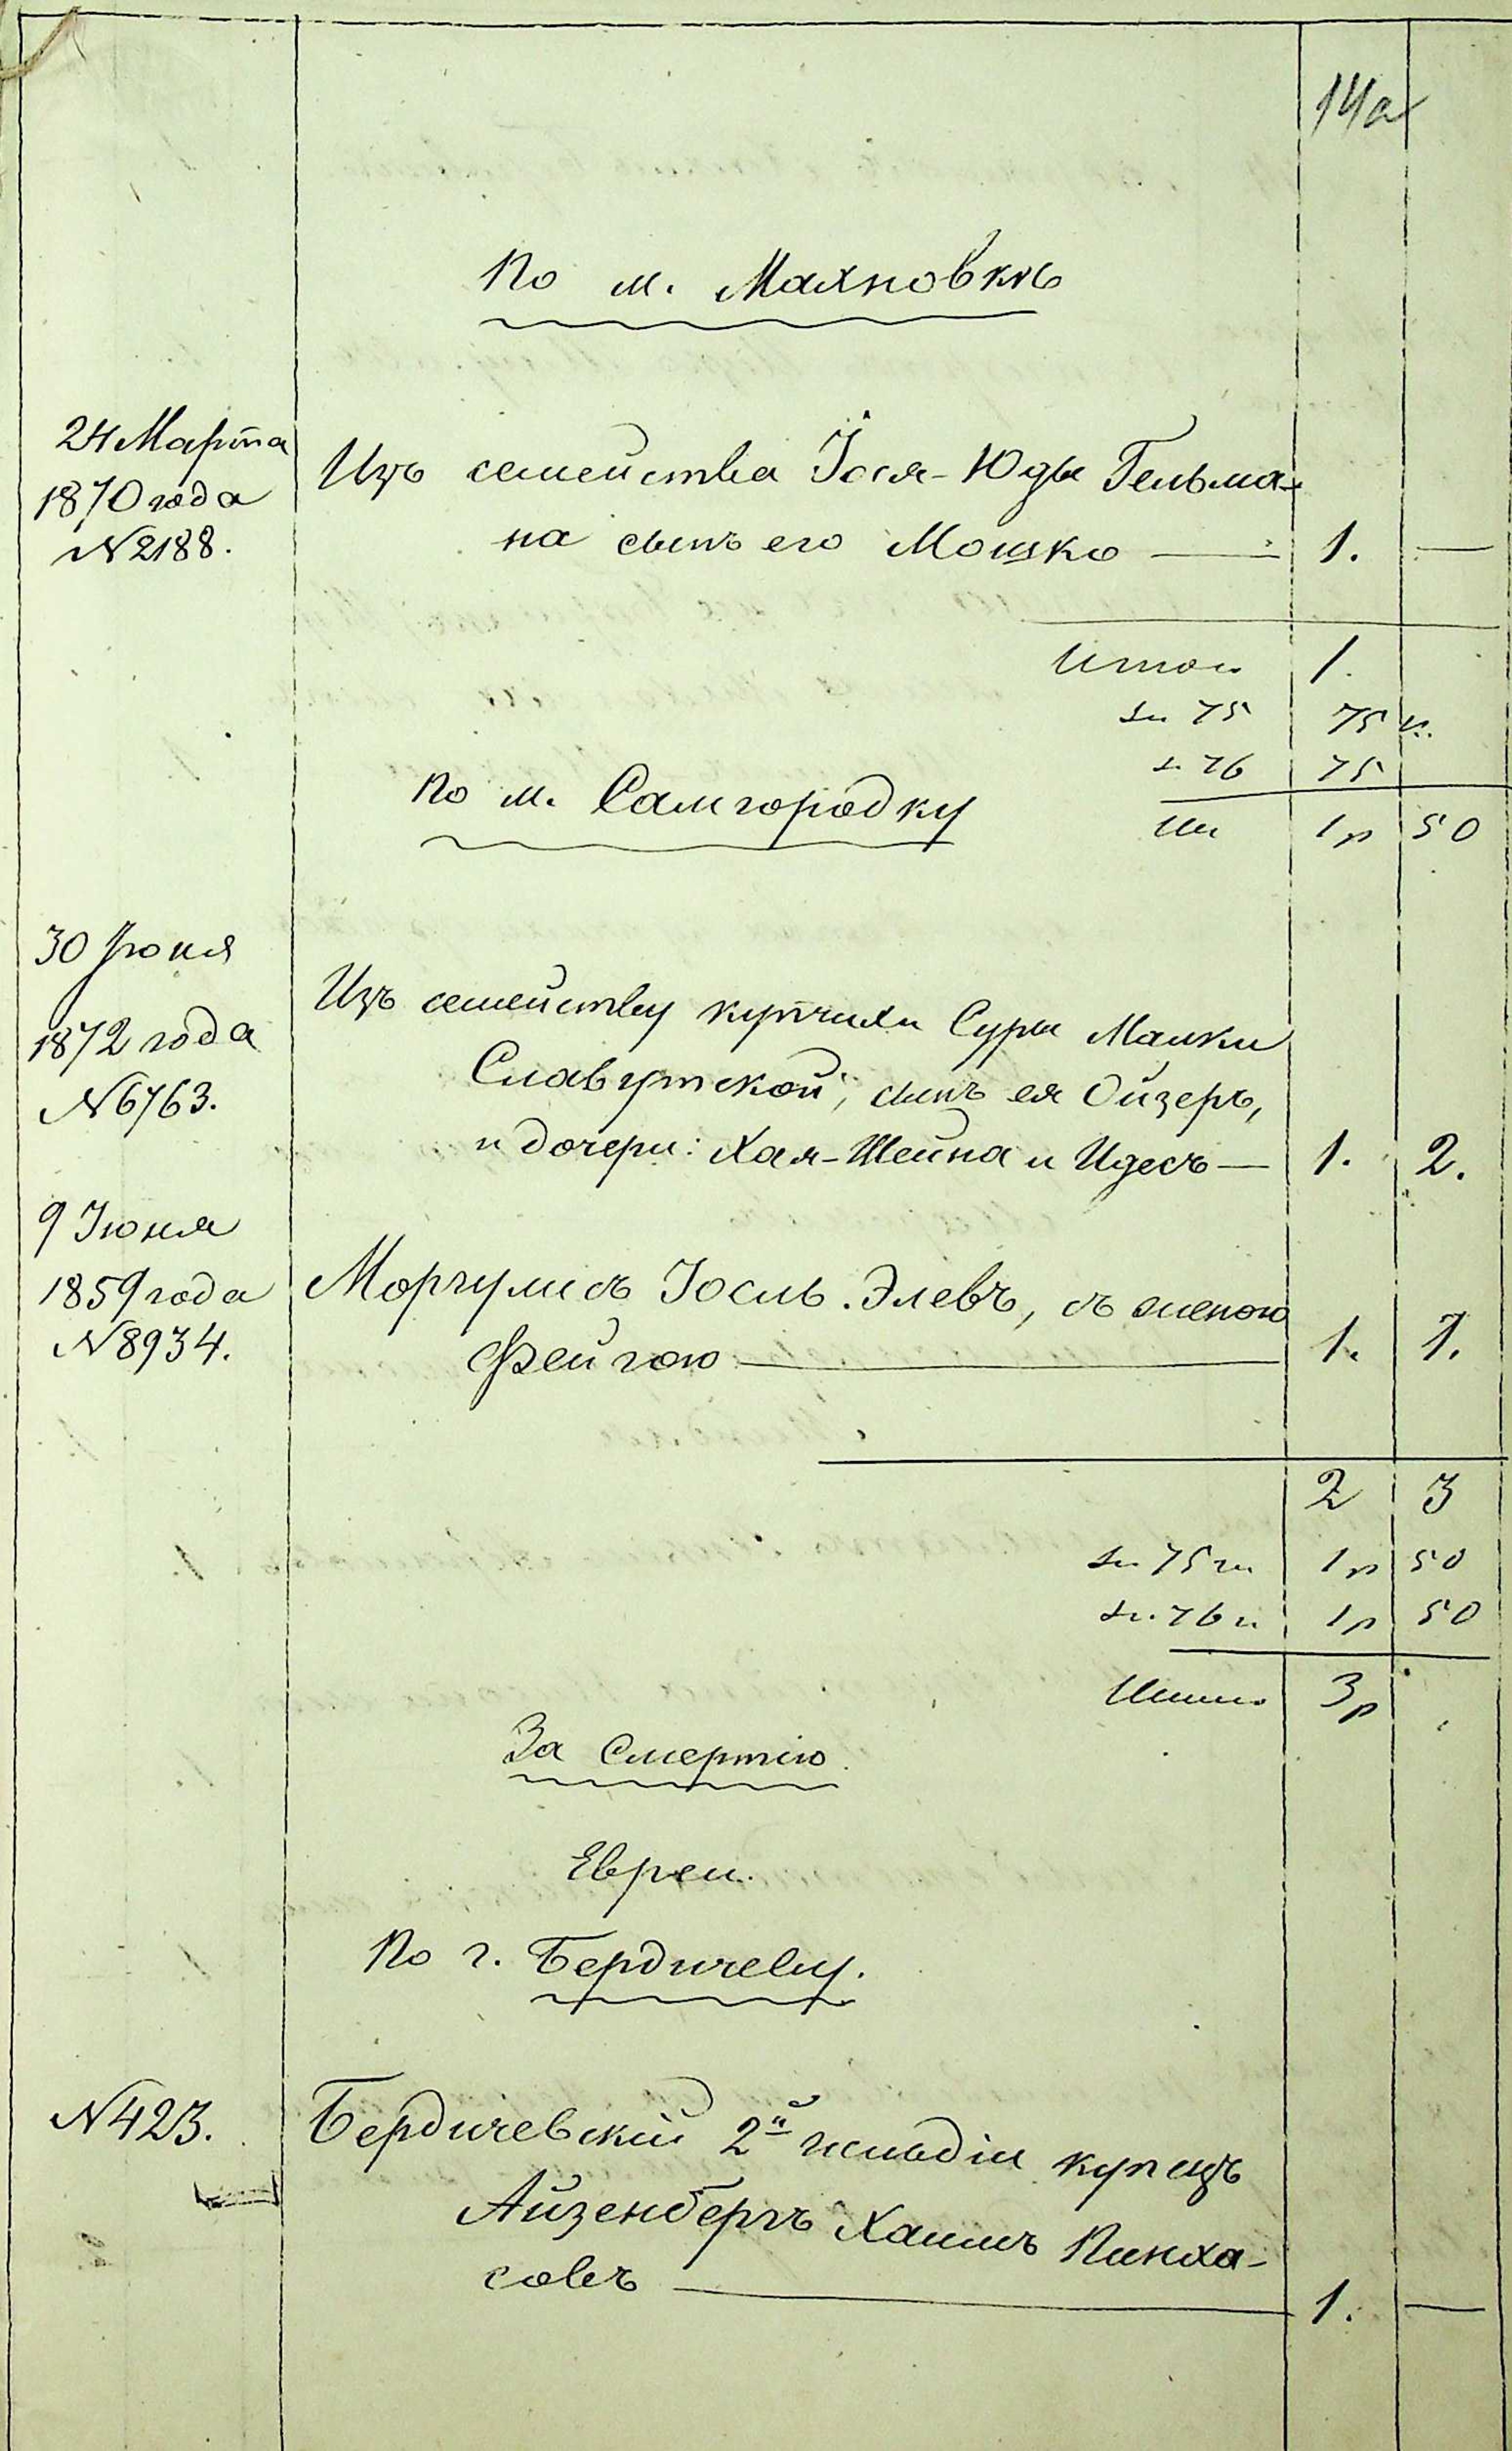 14а
По м. Махновкѣ
24 Марта
1870 года
№ 2188.
Изъ семейства Іося-Юды Гельма-
на сынъ его Мошко — 1. —
Итого 1.
за 75 75 к.
за 76 75
Ит 1 р 50
По м. Самгородку
30 Іюня
1872 года
№ 6763.
Изъ семейству купчихи Суры Малки
Славутской, сынъ ея Ойзеръ,
и дочери: Хая-Шейна и Идесъ — 1. 2.
9 Іюня
1859 года
№ 8934.
Моргулисъ Іосль Элевъ, съ женою
Фейгою — 1. 1.
2 3
за 75 1 р 50
за 76 1 р 50
Итого 3 р
За смертію.
Евреи.
По г. Бердичеву.
№ 423.
Бердичевскій 2й гильдіи купецъ
Айзенбергъ Хаимъ Пинха-
совъ — 1. —